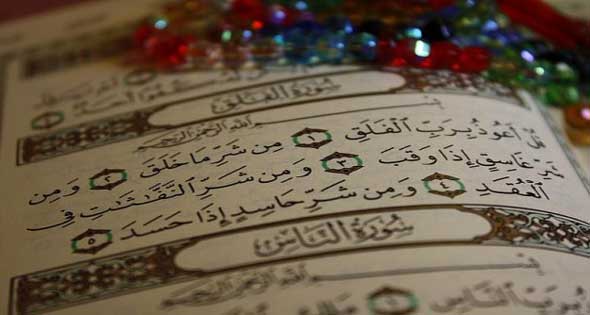 أحد ٤
سورة الفلق
بسم الله الرحمن الرحيم
قل أعوذ برب الفلق ١ من شر ما خلق ٢ ومن
شر غاسق إذا وقب ٣ ومن شر النفاثات في
العقد ٤ ومن شر حاسد إذا حسد ٥
سورة الناس
بسم الله الرحمن الرحيم
برب الناس ١